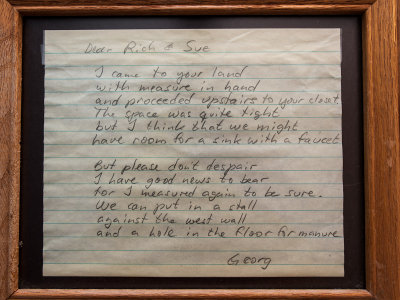 Dear Rich & Sue
I came to your land
with measure in hand
and proceeded upstairs to your closet
The space was quite tight
but I think that we might
have room for a sink with a faucet
But please don't despair
I have good news to bear
for I measured again to be sure.
We can put in a stall
against the west wall
and a hole in the floor for manure
Georg